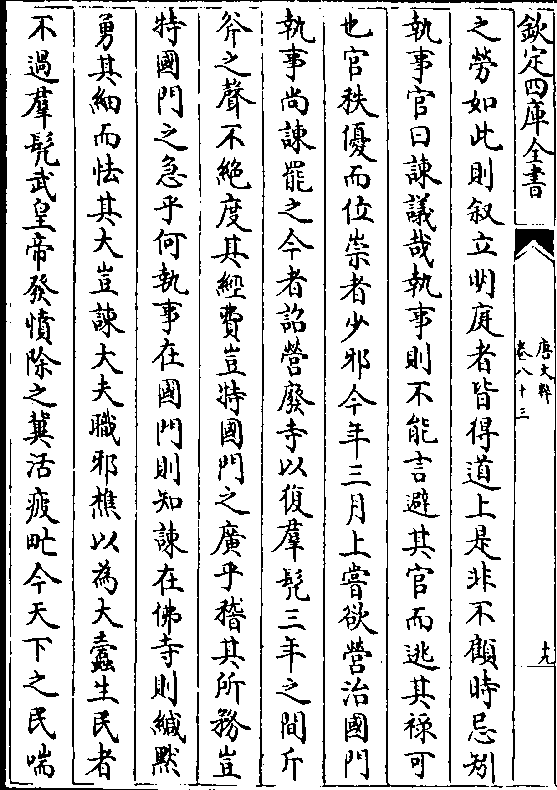 欽定四庫全書
唐文粹
卷八十三
十九
之勞如此則叙立明庭者皆得道上是非不顧時忌矧
執事官曰諫議哉執事則不能言避其官而逃其祿可
也官秩優而位崇者少邪今年三月上嘗欲營治國門
執事尚諫罷之今者詔營廢寺以復羣髡三年之間斤
斧之聲不絶度其經費豈特國門之廣乎稽其所務豈
特國門之急乎何執事在國門則知諫在佛寺則緘默
勇其細而怯其大豈諫大夫職邪樵以為大蠧生民者
不過羣髡武皇帝發憤除之冀活疲甿今天下之民喘